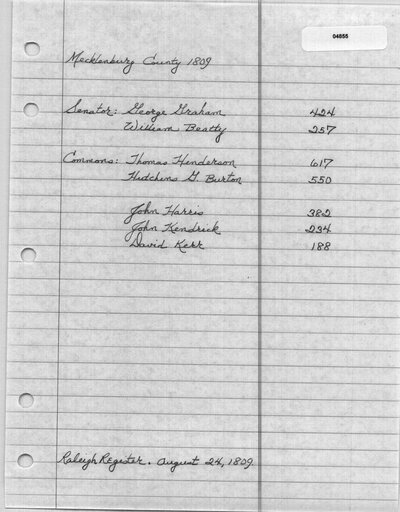 04655
Mecklenburg County 1809
Senator: George Graham 424
William Beatty 257
Commons: Thomas Henderson 617
Hutchins G. Burton 550
John Harris 382
John Kendrick 234
David Kerr 188
Raleigh Register. August 24, 1809.